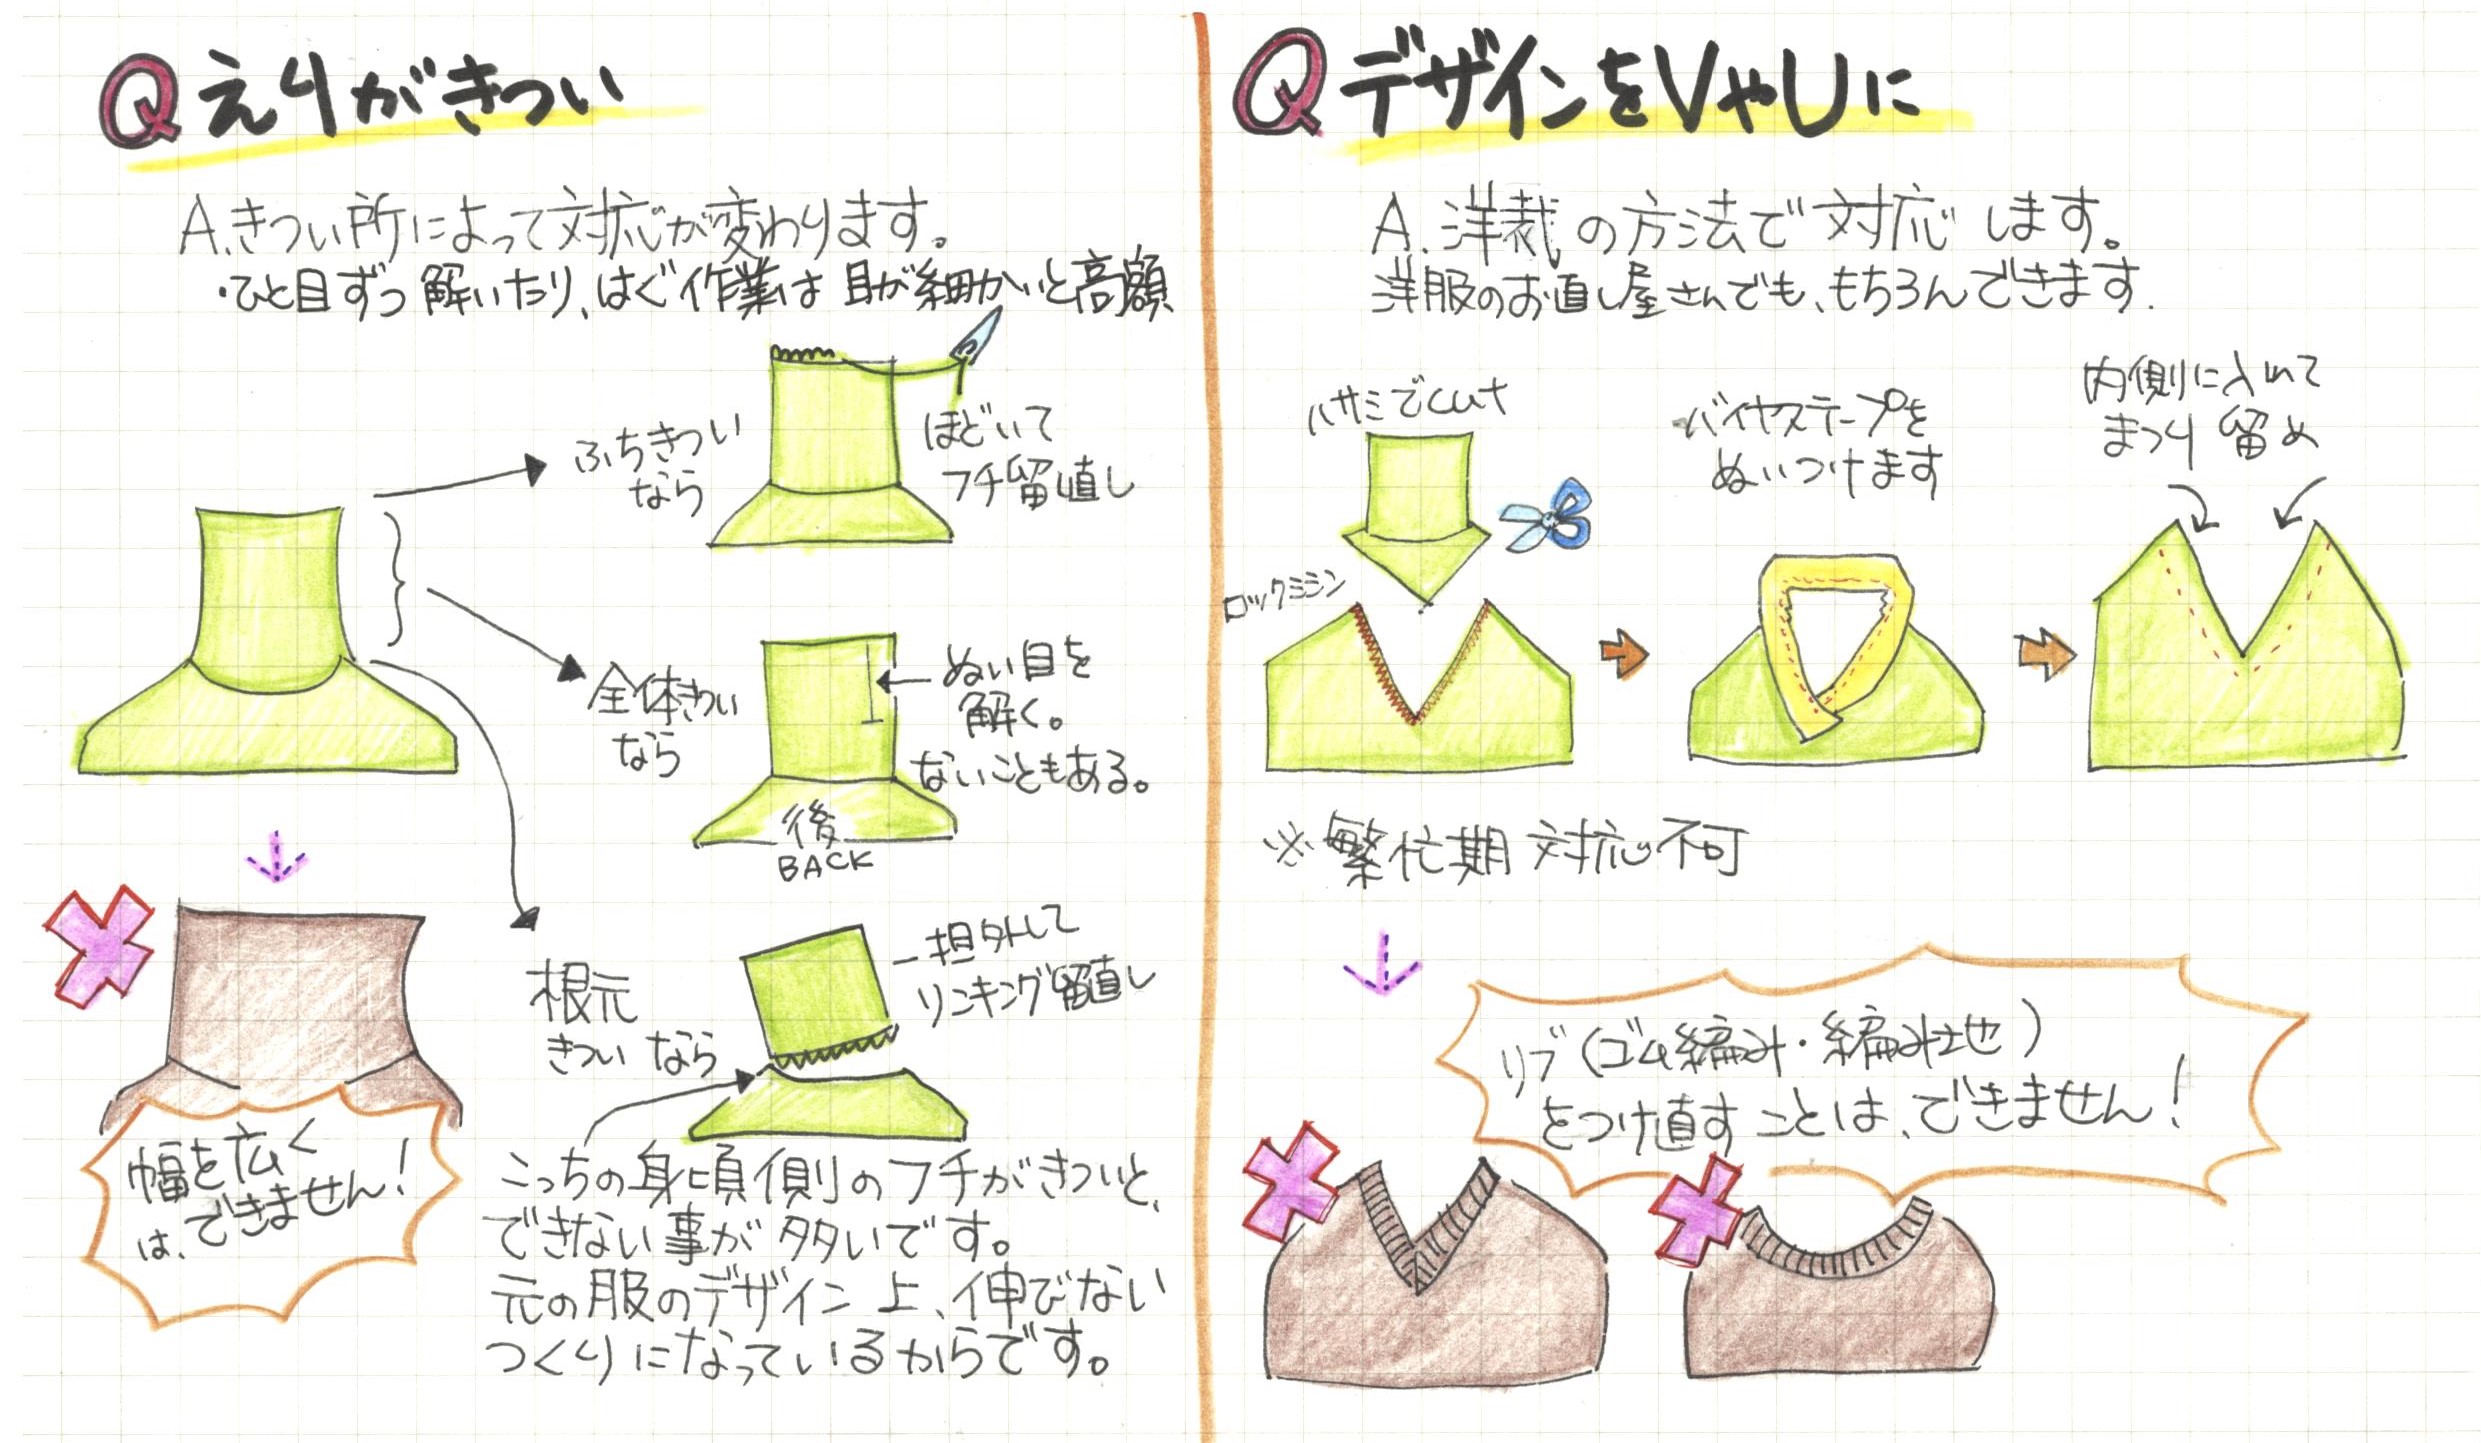 Q えりがきつい
A.きつい所によって対応が変わります。
・ひと目ずつ解いたり、はぐ作業は目が細かいと高額
ふちきつい
なら
ほどいて
フチ留直し
全体きつい
なら
ぬい目を
解く。
ないこともある。
後
BACK
根元
きついなら
一担外して
リンキング留直し
幅を広く
は、できません!
こっちの身頃側のフチがきついと、
できない事が多いです。
元の服のデザイン上、伸びない
つくりになっているからです。
Q デザインをVやUに
A.洋裁の方法で対応します。
洋服のお直し屋さんでも、もちろんできます.
ハサミでcut
ロックミシン
バイヤステープを
ぬいつけます
内側に入れて
まつり留め
※繁忙期対応不可
リブ(ゴム編み・編み地)
をつけ直すことは、できません!